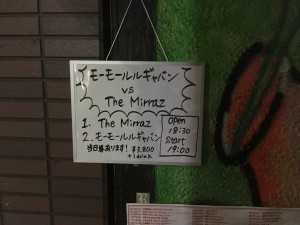 モーモールルギャバン
vs
The Mirraz
1. The Mirraz
2. モーモールルギャバン
当日券あります! ¥3,800
+1drink
open
18:30
Start
19:00